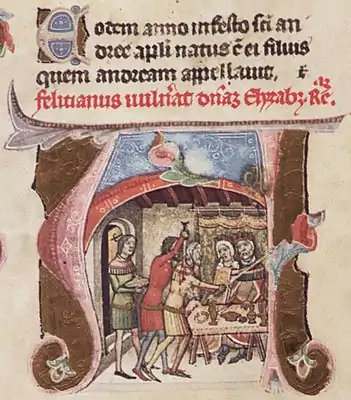 Eodem anno in festo sc̄i an
dree apl̄i natus ē ei filius
quem andream appellavit. ⁊
felitianus uulņ̄at dn̄aꝫ Elyzabꝫ. Rc̄.